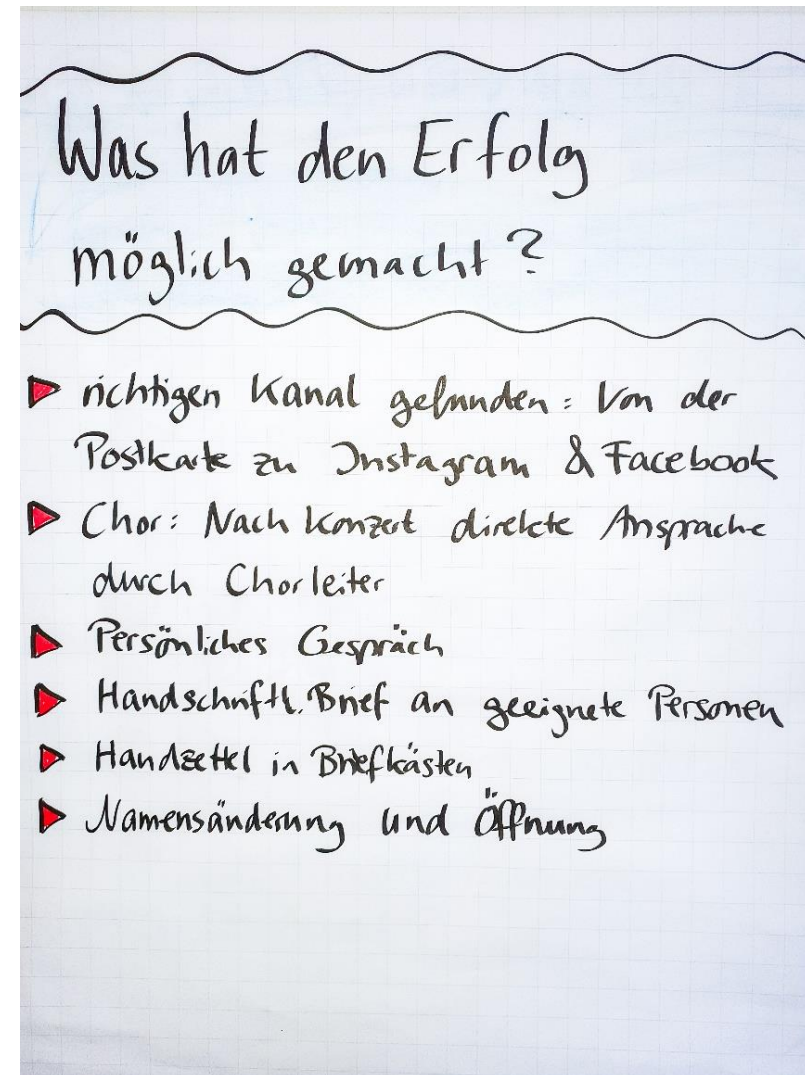 Was hat den Erfolg
möglich gemacht?
richtigen Kanal gefunden: Von der
Postkarte zu Instagram & Facebook
Chor: Nach Konzert direkte Ansprache
durch Chorleiter
Persönliches Gespräch
Handschriftl. Brief an geeignete Personen
Handzettel in Briefkästen
Namensänderung und Öffnung